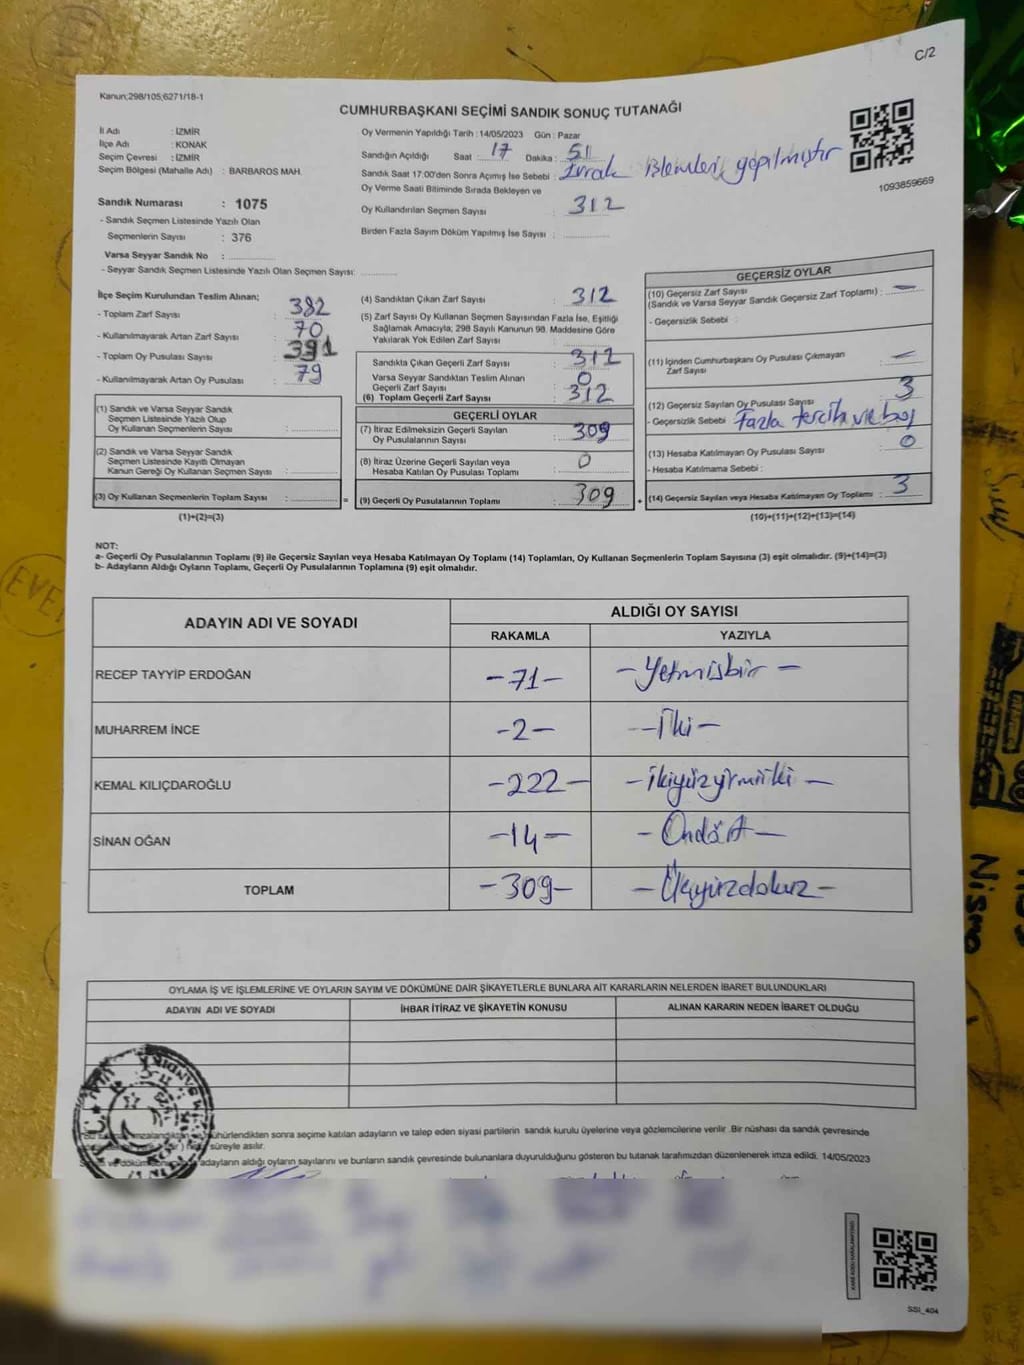 C/2
Kanun;298/105;6271/18-1
CUMHURBAŞKANI SEÇİMİ SANDIK SONUÇ TUTANAĞI
İl Adı : İZMİR
İlçe Adı : KONAK
Seçim Çevresi : İZMİR
Seçim Bölgesi (Mahalle Adı) : BARBAROS MAH.
Sandık Numarası : 1075
- Sandık Seçmen Listesinde Yazılı Olan
Seçmenlerin Sayısı : 376
Varsa Seyyar Sandık No :
- Seyyar Sandık Seçmen Listesinde Yazılı Olan Seçmen Sayısı:
Oy Vermenin Yapıldığı Tarih : 14/05/2023 Gün : Pazar
Sandığın Açıldığı Saat : 17 Dakika : 51
Sandık Saat 17.00'den Sonra Açımış İse Sebebi : Evrak işlemleri yapılmıştır
Oy Verme Saati Bitiminde Sırada Bekleyen ve
Oy Kullandırılan Seçmen Sayısı : 312
Birden Fazla Sayım Döküm Yapılmış İse Sayısı :
1093859669
İlçe Seçim Kurulundan Teslim Alınan;
- Toplam Zarf Sayısı : 382
- Kullanılmayarak Artan Zarf Sayısı : 70
- Toplam Oy Pusulası Sayısı : 391
- Kullanılmayarak Artan Oy Pusulası : 79
(1) Sandık ve Varsa Seyyar Sandık
Seçmen Listesinde Yazılı Olup
Oy Kullanan Seçmenlerin Sayısı :
(2) Sandık ve Varsa Seyyar Sandık
Seçmen Listesinde Kayıtlı Olmayan
Kanun Gereği Oy Kullanan Seçmen Sayısı :
(3) Oy Kullanan Seçmenlerin Toplam Sayısı : =
(1)+(2)=(3)
(4) Sandıktan Çıkan Zarf Sayısı : 312
(5) Zarf Sayısı Oy Kullanan Seçmen Sayısından Fazla İse, Eşitliği
Sağlamak Amacıyla; 298 Sayılı Kanunun 98. Maddesine Göre
Yakılarak Yok Edilen Zarf Sayısı :
Sandıkta Çıkan Geçerli Zarf Sayısı : 312
Varsa Seyyar Sandıktan Teslim Alınan
Geçerli Zarf Sayısı : 0
(6) Toplam Geçerli Zarf Sayısı : 312
GEÇERLİ OYLAR
(7) İtiraz Edilmeksizin Geçerli Sayılan
Oy Pusulalarının Sayısı : 309
(8) İtiraz Üzerine Geçerli Sayılan veya
Hesaba Katılan Oy Pusulası Toplamı : 0
(9) Geçerli Oy Pusulalarının Toplamı : 309 +
GEÇERSİZ OYLAR
(10) Geçersiz Zarf Sayısı
(Sandık ve Varsa Seyyar Sandık Geçersiz Zarf Toplamı) : —
- Geçersizlik Sebebi :
(11) İçinden Cumhurbaşkanı Oy Pusulası Çıkmayan
Zarf Sayısı : —
(12) Geçersiz Sayılan Oy Pusulası Sayısı : 3
- Geçersizlik Sebebi : Fazla tercih ve boş
(13) Hesaba Katılmayan Oy Pusulası Sayısı : 0
- Hesaba Katılmama Sebebi :
(14) Geçersiz Sayılan veya Hesaba Katılmayan Oy Toplamı : 3
(10)+(11)+(12)+(13)=(14)
NOT:
a- Geçerli Oy Pusulalarının Toplamı (9) ile Geçersiz Sayılan veya Hesaba Katılmayan Oy Toplamı (14) Toplamları, Oy Kullanan Seçmenlerin Toplam Sayısına (3) eşit olmalıdır. (9)+(14)=(3)
b- Adayların Aldığı Oyların Toplamı, Geçerli Oy Pusulalarının Toplamına (9) eşit olmalıdır.
ADAYIN ADI VE SOYADI ALDIĞI OY SAYISI
RAKAMLA YAZIYLA
RECEP TAYYİP ERDOĞAN -71- -Yetmişbir-
MUHARREM İNCE -2- -İki-
KEMAL KILIÇDAROĞLU -222- -ikiyüzyirmiiki-
SİNAN OĞAN -14- -Ondört-
TOPLAM -309- -Üçyüzdokuz-
OYLAMA İŞ VE İŞLEMLERİNE VE OYLARIN SAYIM VE DÖKÜMÜNE DAİR ŞİKAYETLERLE BUNLARA AİT KARARLARIN NELERDEN İBARET BULUNDUKLARI
ADAYIN ADI VE SOYADI İHBAR İTİRAZ VE ŞİKAYETİN KONUSU ALINAN KARARIN NEDEN İBARET OLDUĞU
mühürlendikten sonra seçime katılan adayların ve talep eden siyasi partilerin sandık kurulu üyelerine veya gözlemcilerine verilir .Bir nüshası da sandık çevresinde
süreyle asılır.
adayların aldığı oyların sayılarını ve bunların sandık çevresinde bulunanlara duyurulduğunu gösteren bu tutanak tarafımızdan düzenlenerek imza edildi. 14/05/2023
SSI_404
Nismo